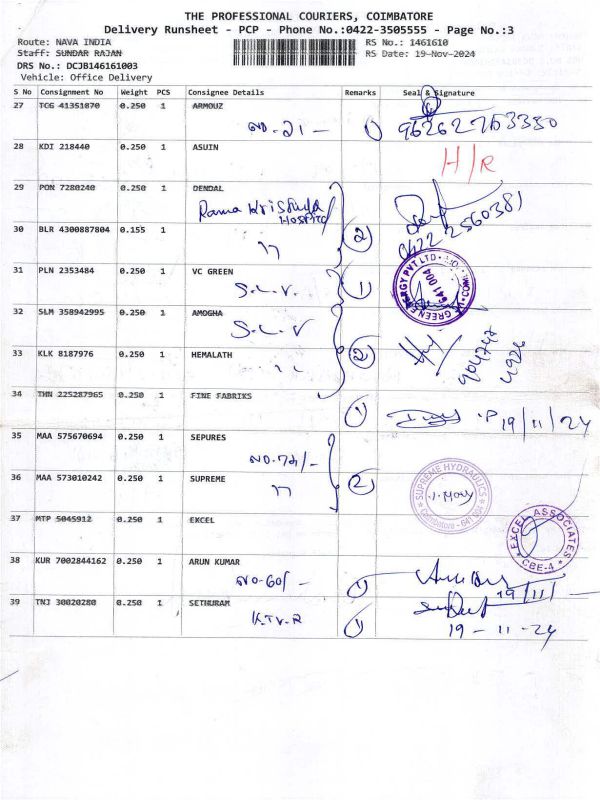 THE PROFESSIONAL COURIERS, COIMBATORE
Delivery Runsheet - PCP - Phone No.:0422-3505555 - Page No.:3
Route: NAVA INDIA RS No.: 1461610
Staff: SUNDAR RAJAN RS Date: 19-Nov-2024
DRS No.: DCJB146161003
Vehicle: Office Delivery
S No Consignment No Weight PCS Consignee Details Remarks Seal & Signature
27 TCG 41351870 0.250 1 ARMOUZ
NO. 21 - 1 9626277633
28 KDI 218440 0.250 1 ASUIN
H/R
29 PON 7280240 0.250 1 DENDAL
Rama Krishna
HOSPITAL
0422 2560381
30 BLR 4300887804 0.155 1 2
11
31 PLN 2353484 0.250 1 VC GREEN
S.L.V. 1
VC GREEN ENERGY PVT LTD
641 004
32 SLM 358942995 0.250 1 AMOGHA
S.L.V
33 KLK 8187976 0.250 1 HEMALATH 2
34 THN 225287965 0.250 1 FINE FABRIKS
1 19/11/24
35 MAA 575670694 0.250 1 SEPURES
NO.72/-
36 MAA 573010242 0.250 1 SUPREME 2
11
SUPREME HYDRAULICS
37 MTP 5045912 0.250 1 EXCEL
EXCEL ASSOCIATES
CBE-4
38 KUR 7002844162 0.250 1 ARUN KUMAR
NO-60/- 1 19/11/-
39 TNJ 30020280 0.250 1 SETHURAM
K.TV.R 1 19-11-24